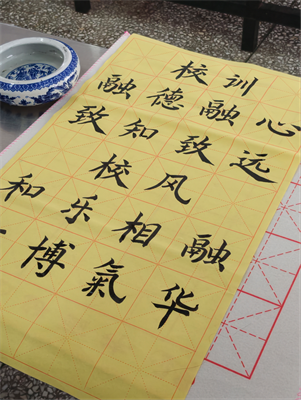 校训
融德融心
致知致远
校风
和乐相融
博氣华